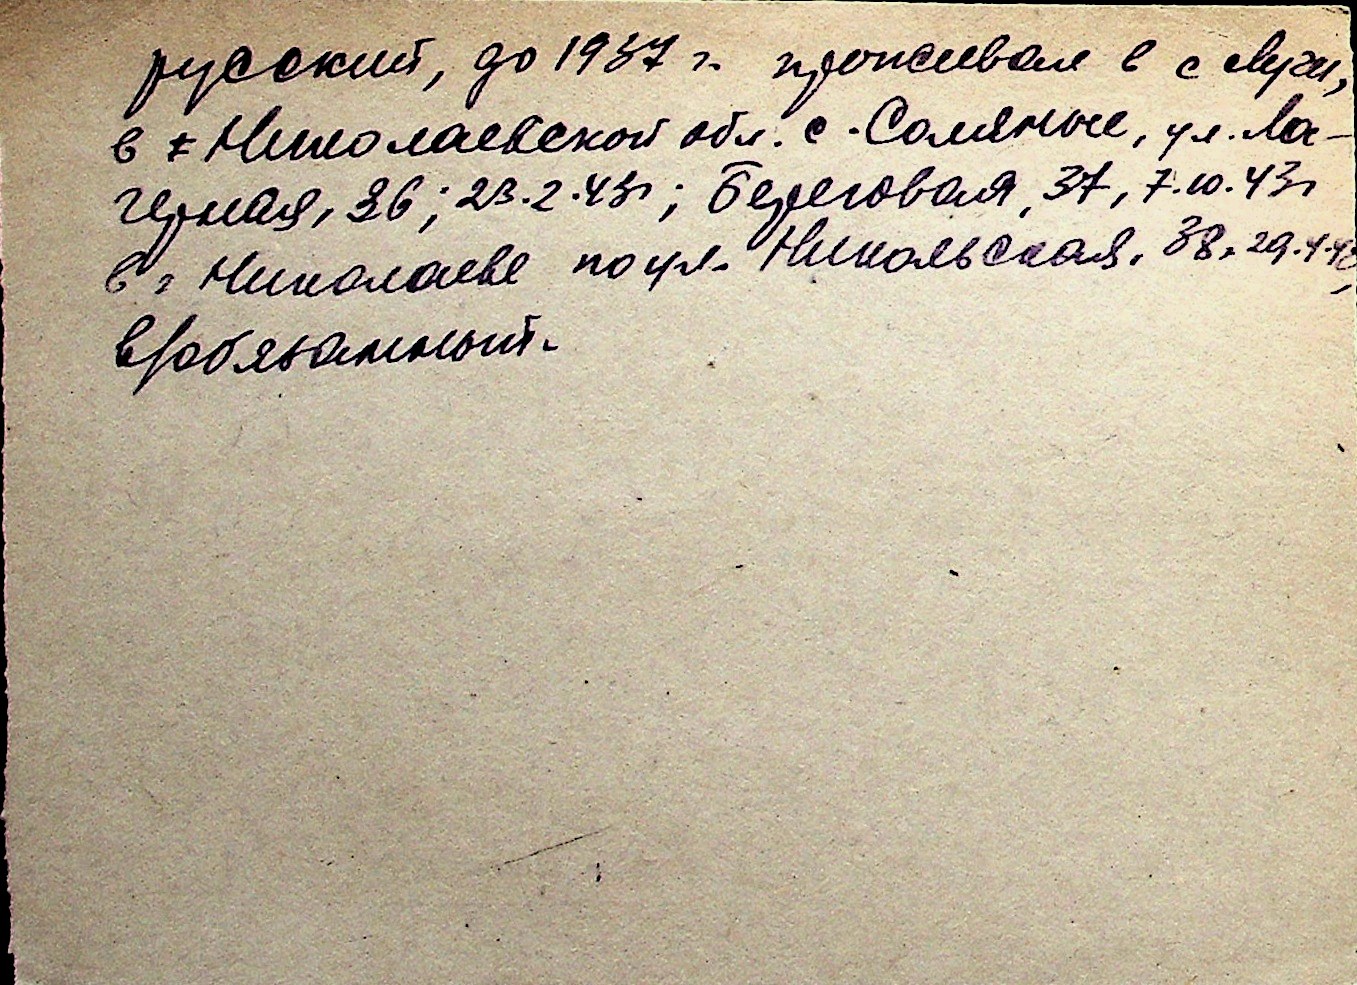 русский, до 1937 г. проживал в с Лучи,
в Николаевской обл. с. Соляные, ул. Ла-
герная, 36; 23.2.43г; Береговая, 37, 7.10.43г
в г Николаеве по ул. Никольская, 38, 29.4.
в/обязанный.